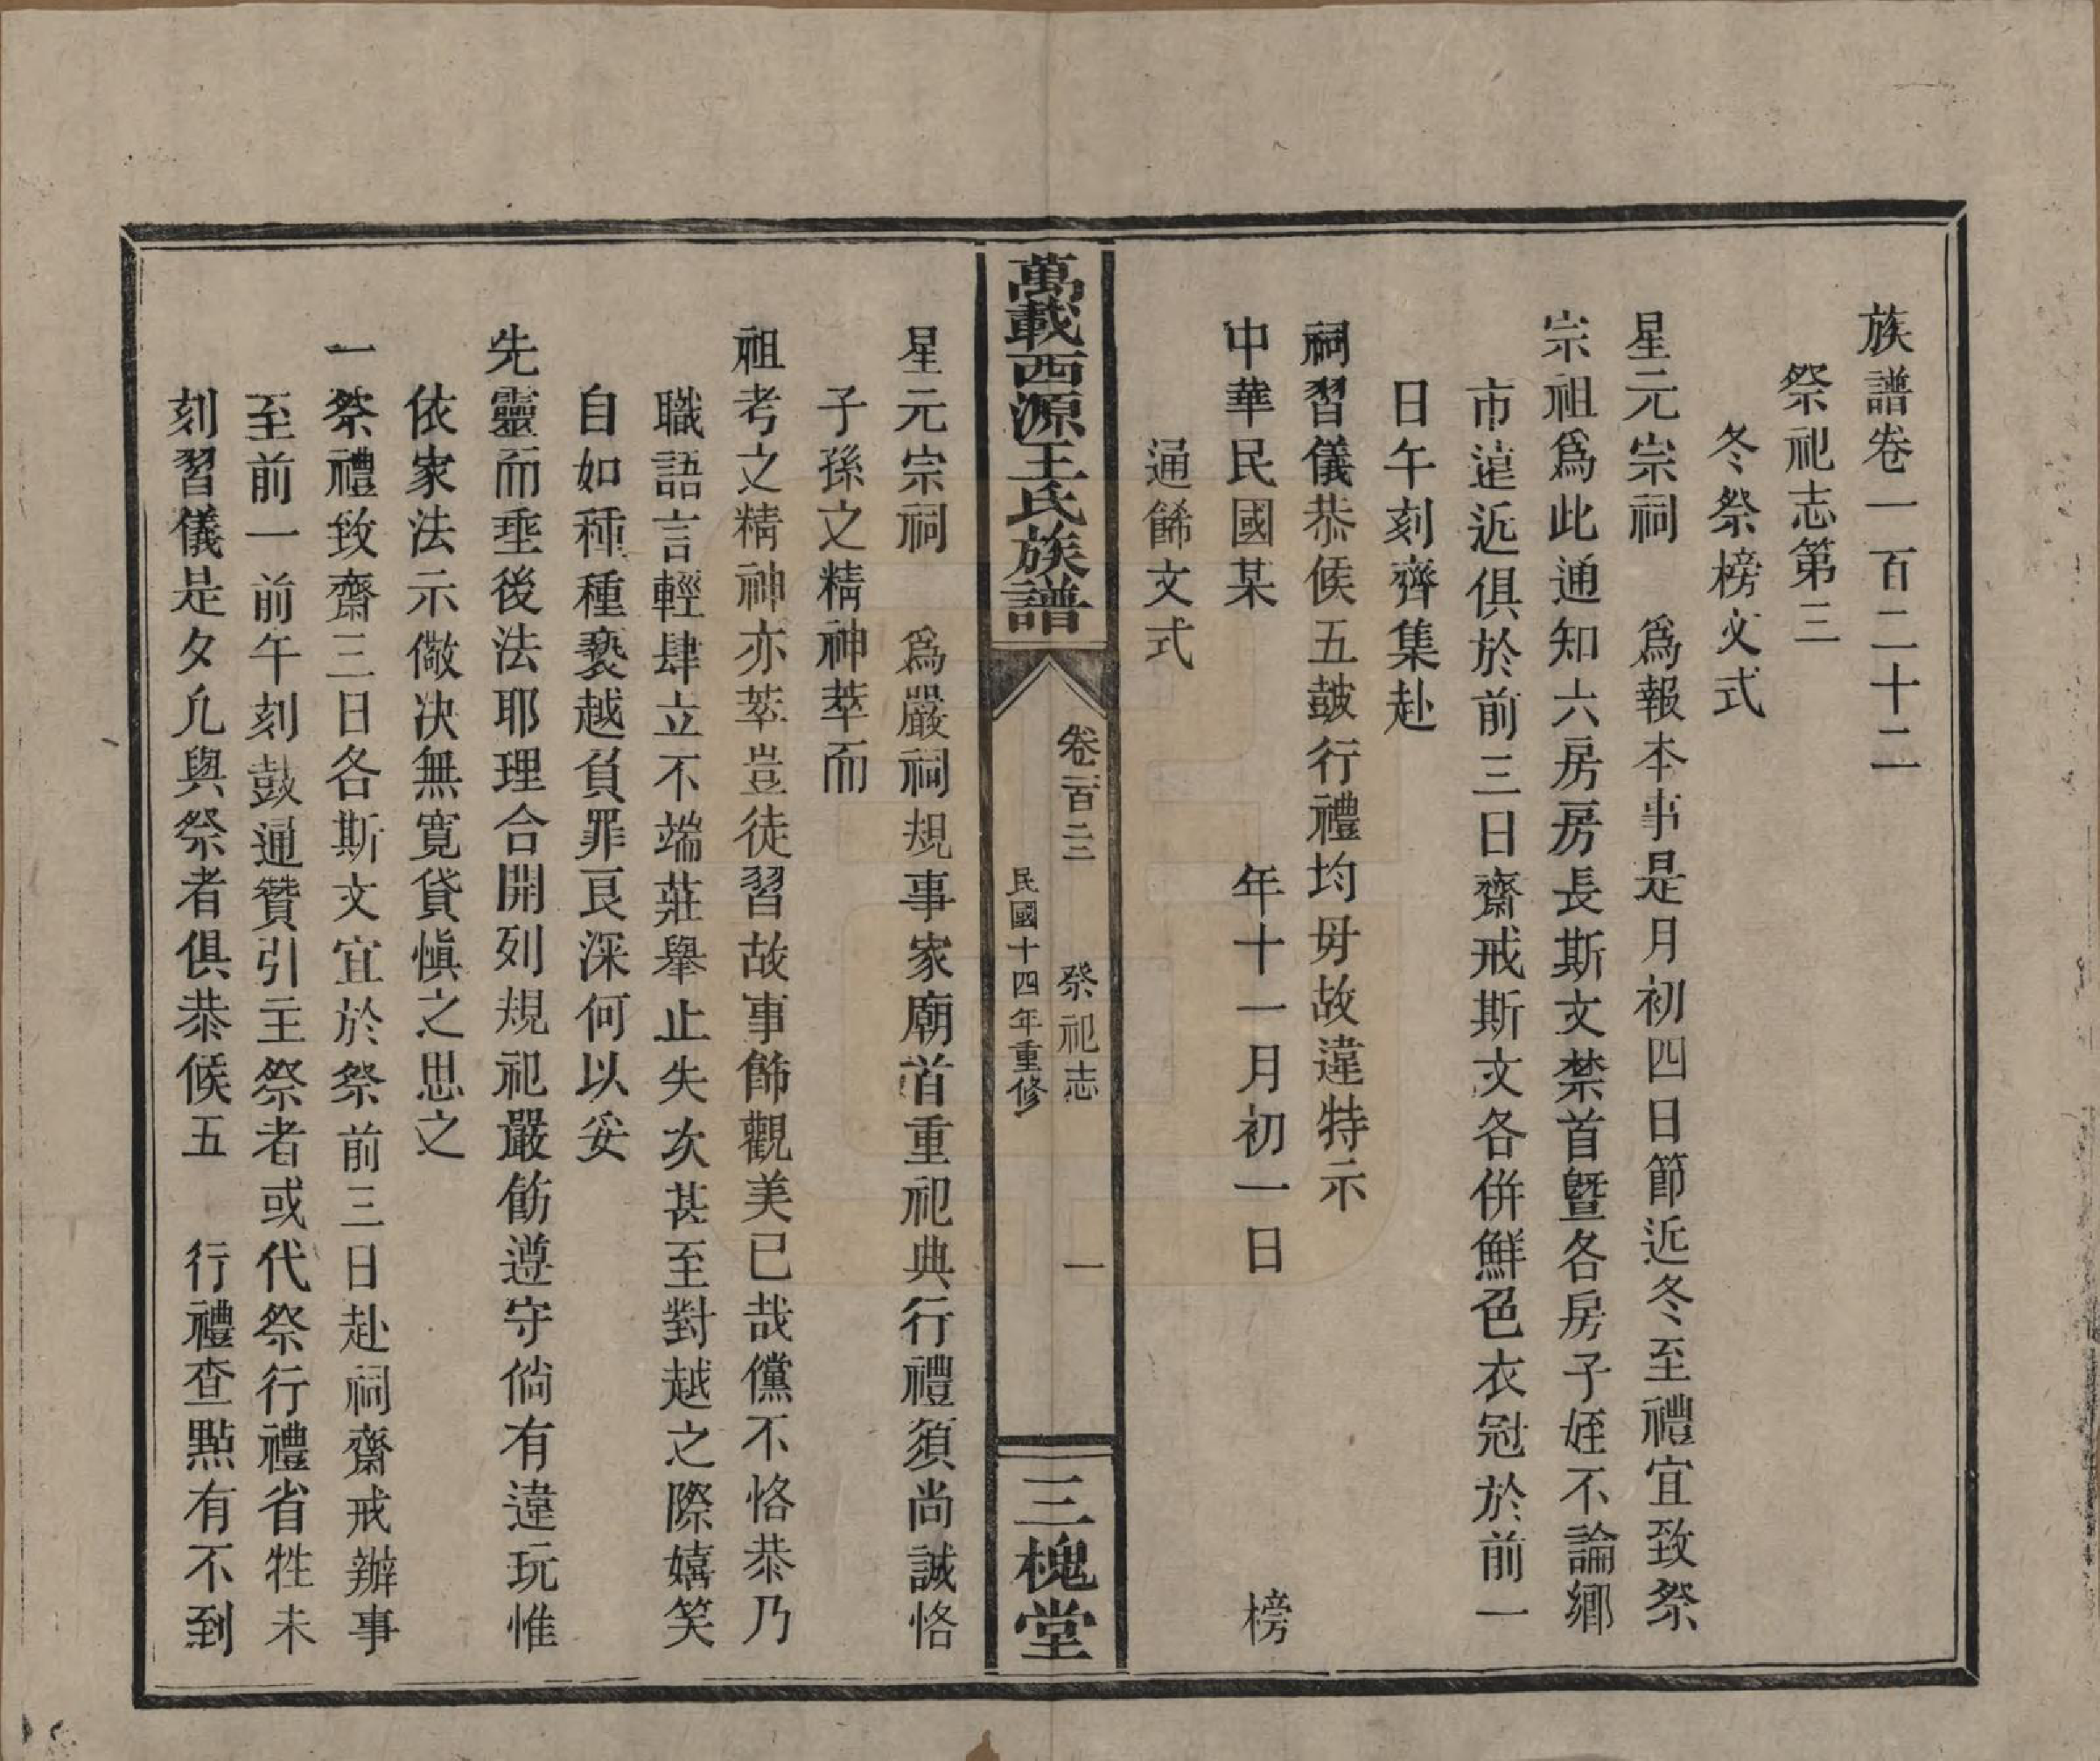 族譜卷一百二十二
祭祀志第三
冬祭榜文式
星元宗祠　爲報本事是月初四日節近冬至禮宜致祭
宗祖爲此通知六房房長斯文禁首曁各房子姪不論鄉
市遠近俱於前三日齋戒斯文各併鮮色衣冠於前一
日午刻齊集赴
祠習儀恭候五皷行禮均毋故違特示
中華民國某　　　　年十一月初一日　　　　　榜
通餙文式
萬載西源王氏族譜
卷一百二十二　祭祀志　一
民國十四年重修
三槐堂
星元宗祠　爲嚴祠規事家廟首重祀典行禮須尚誠恪
子孫之精神萃而
祖考之精神亦萃豈徒習故事飾觀美已哉儻不恪恭乃
職語言輕肆立不端莊舉止失次甚至對越之際嬉笑
自如種種褻越負罪良深何以妥
先靈而垂後法耶理合開列規祀嚴餙遵守倘有違玩惟
依家法示儆决無寬貸愼之思之
一祭禮致齋三日各斯文宜於祭前三日赴祠齋戒辦事
至前一前午刻鼓通贊引主祭者或代祭行禮省牲未
刻習儀是夕凢與祭者俱恭候五　行禮查點有不到